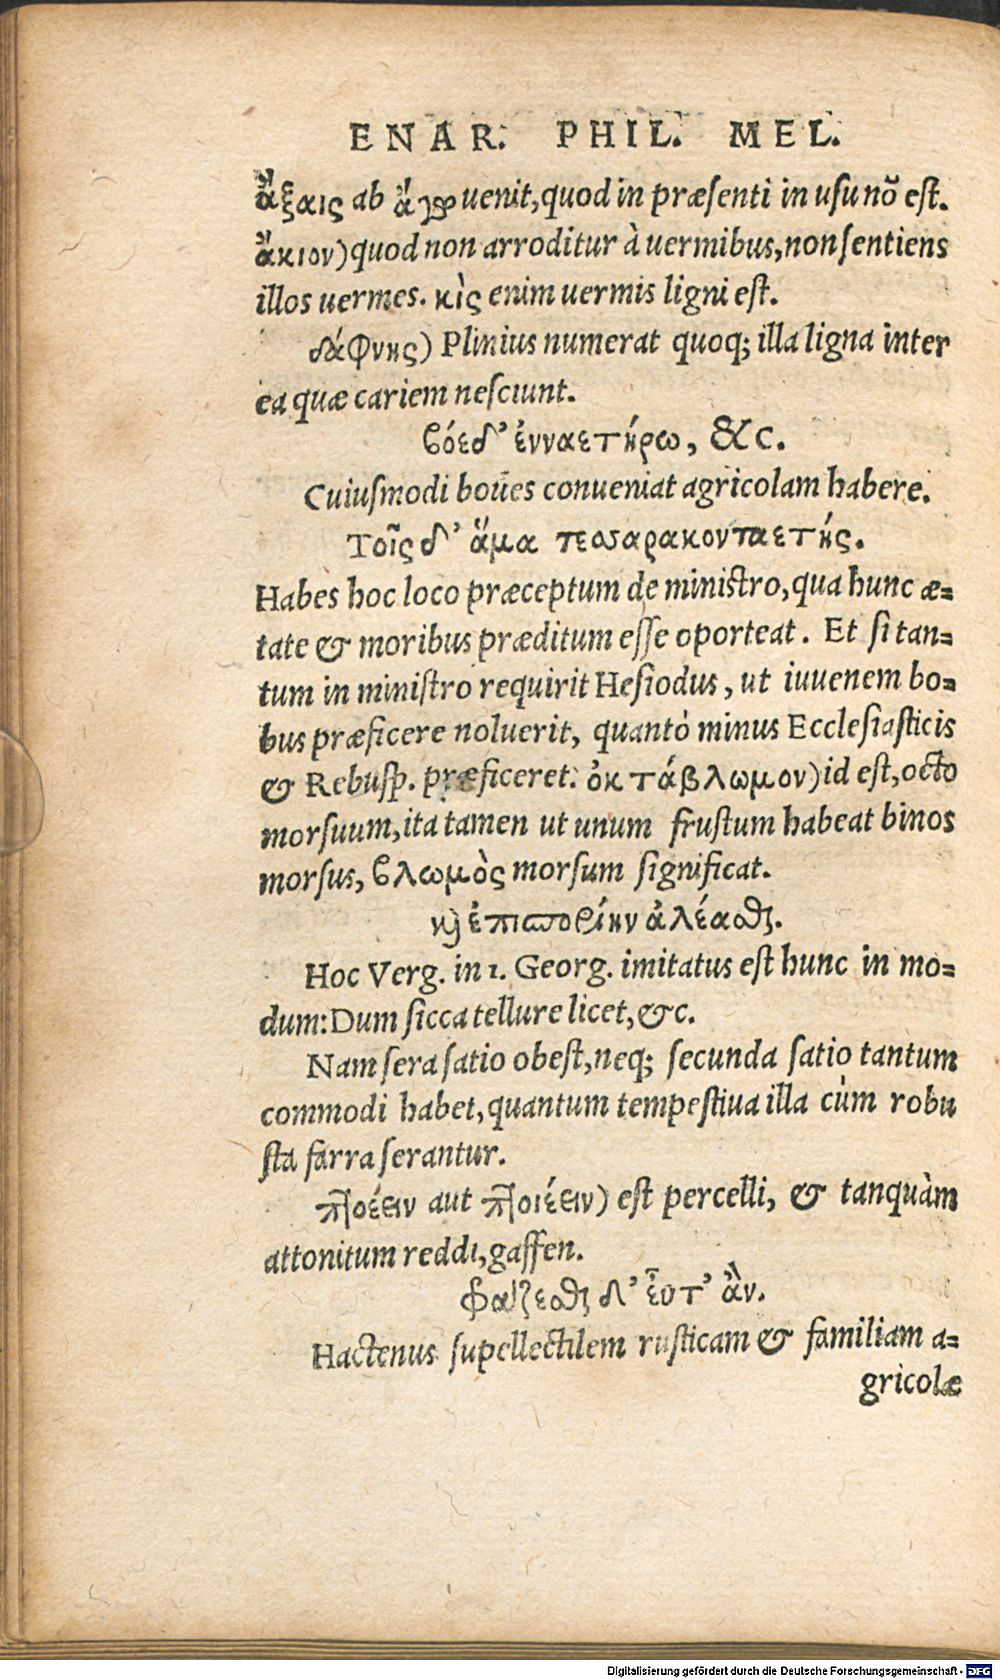 ENAR. PHIL. MEL.
ἄξαις ab ἄγω uenit, quod in præsenti in usu nõ est.
ἄκιον) quod non arroditur à uermibus, non sentiens
illos uermes. κὶς enim uermis ligni est.
δάφνης) Plinius numerat quoq; illa ligna inter
ea quæ cariem nesciunt.
βόεδ' ἐνναετήρω, &c.
Cuiusmodi boues conueniat agricolam habere.
Τοῖς δ' ἅμα τεσσαρακονταετής.
Habes hoc loco præceptum de ministro, qua hunc æ-
tate & moribus præditum esse oporteat. Et si tan-
tum in ministro requirit Hesiodus, ut iuuenem bo-
bus præficere noluerit, quantò minus Ecclesiasticis
& Rebusp. præficeret. ὀκτάβλωμον) id est, octo
morsuum, ita tamen ut unum frustum habeat binos
morsus, βλωμὸς morsum significat.
καὶ ἐπισπορίην ἀλέασθαι.
Hoc Verg. in 1. Georg. imitatus est hunc in mo-
dum: Dum sicca tellure licet, &c.
Nam sera satio obest, neq; secunda satio tantum
commodi habet, quantum tempestiua illa cùm robu
sta farra serantur.
πτοέειν aut πτοιέειν) est percelli, & tanquàm
attonitum reddi, gaffen.
φράζεσθαι δ' εὖτ' ἂν.
Hactenus supellectilem rusticam & familiam a-
gricolæ
Digitalisierung gefördert durch die Deutsche Forschungsgemeinschaft - DFG